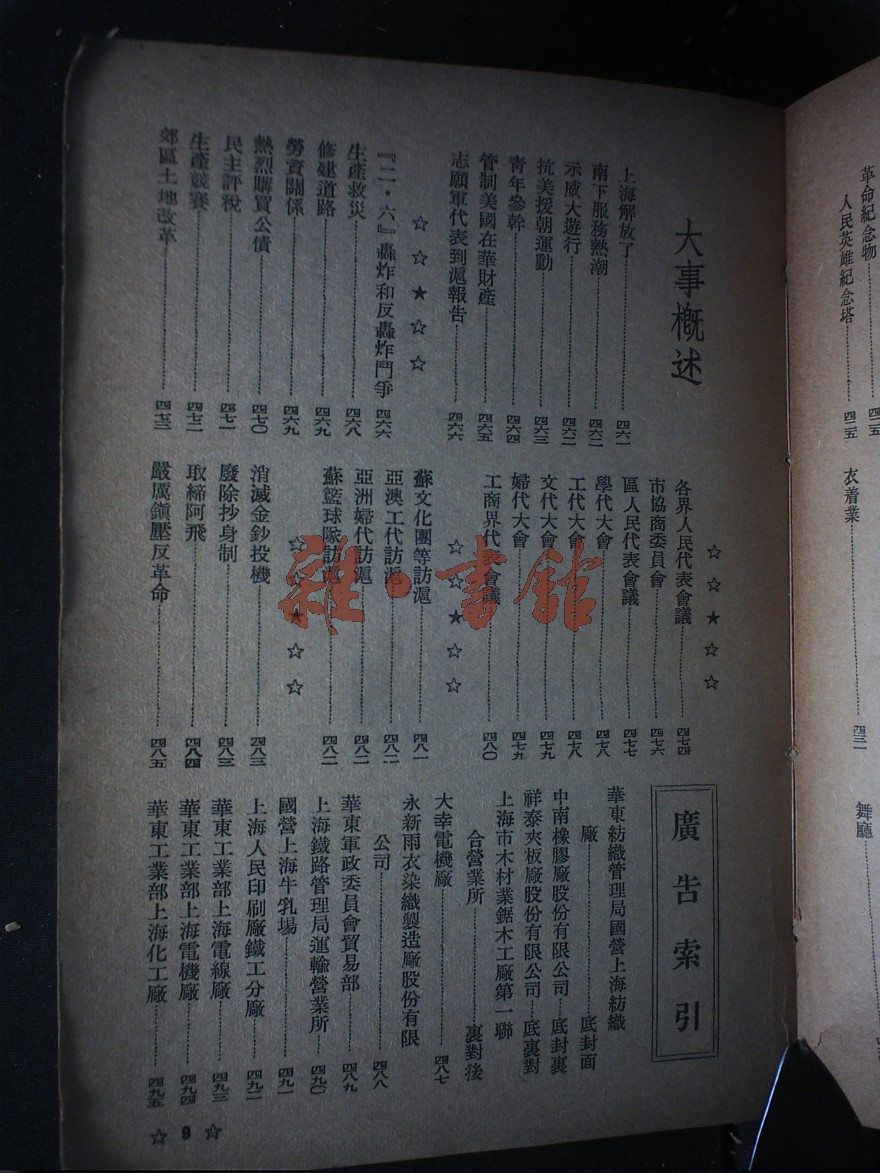 大事概述
上海解放了 四六一
南下服務熱潮 四六二
示威大遊行 四六二
抗美援朝運動 四六三
青年參幹 四六四
管制美國在華財產 四六五
志願軍代表到滬報告 四六六
☆☆★☆☆
『二·六』轟炸和反轟炸鬥爭 四六六
生產救災 四六八
修建道路 四六九
勞資關係 四六九
熱烈購買公債 四七〇
民主評稅 四七一
生產競賽 四七二
郊區土地改革 四七三
☆☆★☆☆
各界人民代表會議 四七四
市協商委員會 四七六
區人民代表會議 四七七
學代大會 四七八
工代大會 四七八
文代大會 四七九
婦代大會 四七九
工商界代表會議 四八〇
☆☆★☆☆
蘇文化團等訪滬 四八一
亞澳工代訪滬 四八二
亞洲婦代訪滬 四八二
蘇籃球隊訪滬 四八二
☆☆★☆☆
消滅金鈔投機 四八三
廢除抄身制 四八三
取締阿飛 四八四
嚴厲鎭壓反革命 四八五
廣告索引
華東紡織管理局國營上海紡織
廠 底封面
中南橡膠廠股份有限公司 底封裏
祥泰夾板廠股份有限公司 底裏對
上海市木材業鋸木工廠第一聯
合營業所 裏對後
大幸電機廠 四八七
永新雨衣染織製造廠股份有限
公司 四八八
華東軍政委員會貿易部 四八九
上海鐵路管理局運輸營業所 四九〇
國營上海牛乳場 四九一
上海人民印刷廠鐵工分廠 四九二
華東工業部上海電線廠 四九三
華東工業部上海電機廠 四九四
華東工業部上海化工廠 四九五
☆ 9 ☆
革命紀念物 四二五
人民英雄紀念塔 四二五
衣着業 四三一
舞廳
雜·書館